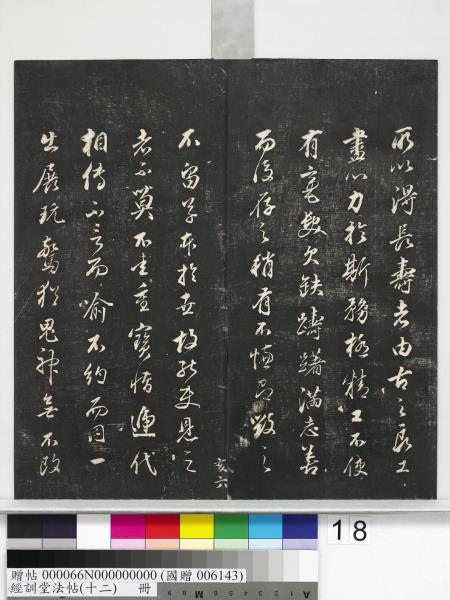 所以得長壽者由古之為工
盡心力於斯務極精工不使
有毫髮欠缺躊躇滿志善
而後存之稍有不愜即毀之
不留草本於世故能使見之
者不莫不生重寶惜遞代
相傳不言而喻不約而同一
出展玩驚猶鬼神無不改
亥六
18
贈帖 000066N000000000 (國贈 006143)
經訓堂法帖(十二) 冊